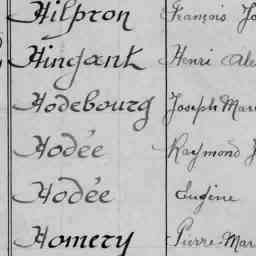 Hilpron François Jo
Hingank Henri Ale
Hodebourg Joseph Mari
Hodée Raymond J
Hodée Eugène
Homery Pierre-Mar